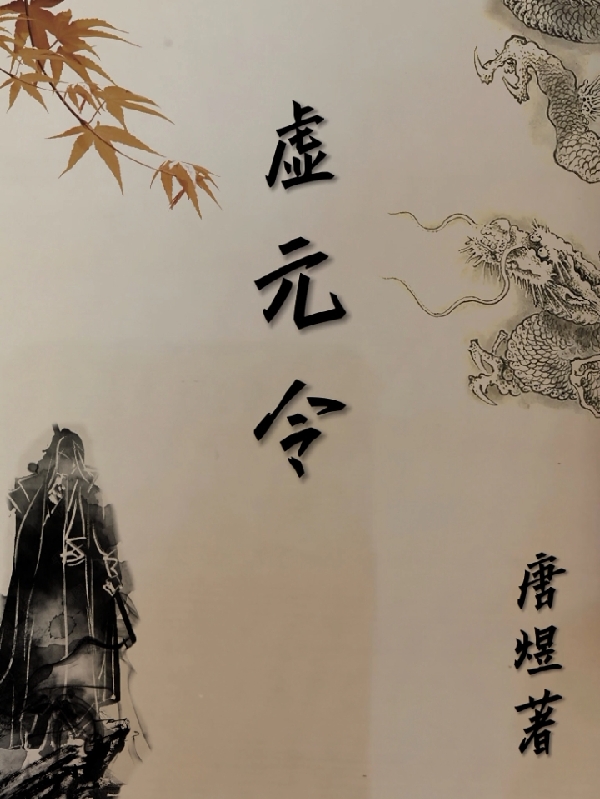 虚元令
唐煜著